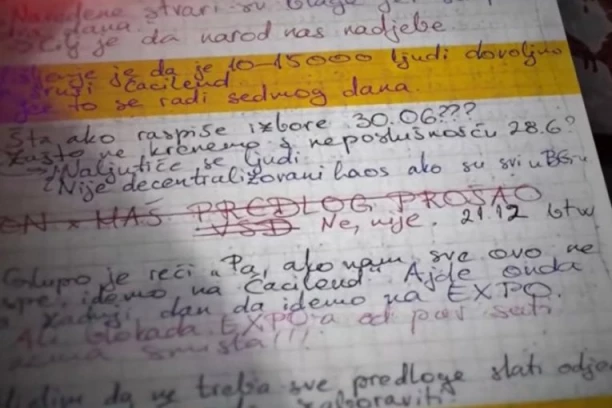 Naređene stvari su blage
dana.
Cilj je da narod nas nadjebe
je da je 10-15000 ljudi dovoljno
sruši Ćacilend
to se radi sedmog dana.
Šta ako raspiše izbore 30.06???
Zašto ne krenemo s neposlušnošću 28.6?
→ Naljutiće se ljudi
Nije decentralizovani haos ako su svi u BG-u
EN x NAŠ PREDLOG PROŠAO
VSD Ne, nije. 21:12 btw
Glupo je reći „Pa, ako nam sve ovo ne
uspe, idemo na Ćacilend. Ajde onda
zadnji dan da idemo na EXPO.
Ali blokada EXPO-a od par sati
nema smisla!!!
da ne treba sve predloge slati
zaboraviti